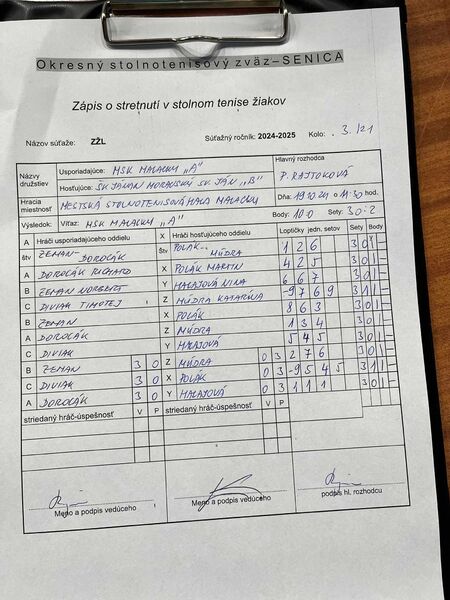 Okresný stolnotenisový zväz–SENICA
Zápis o stretnutí v stolnom tenise žiakov
Názov súťaže: ZŽL Súťažný ročník: 2024-2025 Kolo: . 3./21
Názvy družstiev Usporiadajúce: MSK MALACKY "A" Hlavný rozhodca
Hosťujúce: SK JÁN "B" P. RAJTOKOVÁ
Hracia miestnosť MESTSKÁ STOLNOTENISOVÁ HALA MALACKY Dňa: 19.10.24 o 11:30 hod.
Výsledok: Víťaz: MSK MALACKY "A" Body: 10:0 Sety: 30:2
A Hráči usporiadajúceho oddielu X Hráči hosťujúceho oddielu Loptičky jedn. setov Sety Body
štv ZEMAN- DOROČÁK štv POLÁK- MÚDRA 1 2 6 3 0 1 –
A DOROČÁK RICHARD X POLÁK MARTIN 4 2 5 3 0 1 –
B ZEMAN NORBERT Y MALAJOVÁ NINA 6 6 7 3 0 1 –
C DIVIAK TIMOTEJ Z MÚDRA KATARÍNA -9 7 6 9 3 1 1 –
B ZEMAN X POLÁK 8 6 3 3 0 1 –
A DOROČÁK Z MÚDRA 1 3 4 3 0 1 –
C DIVIAK Y MALAJOVÁ 5 4 5 3 0 1 –
B ZEMAN 3 0 Z MÚDRA 0 3 2 7 6 3 0 1 –
C DIVIAK 3 0 X POLÁK 0 3 -9 5 4 5 3 1 1 –
A DOROČÁK 3 0 Y MALAJOVÁ 0 3 1 1 1 3 0 1 –
striedaný hráč-úspešnosť V P striedaný hráč-úspešnosť V P
Meno a podpis vedúceho Meno a podpis vedúceho podpis hl. rozhodcu